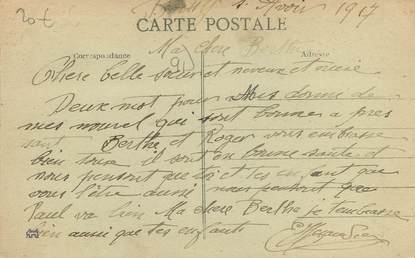 20€
1917
CARTE POSTALE
Ma chere Berthe
Correspondance
Adresse
Chere belle soeur et neveux et niece
Deux mot pour vous donne de
mes nouvel qui sont bonnes a pres
sant Berthe et Roger vous embrasse
bien tous il sont en bonne sante et
nous pensont que toi et tes enfant que
vous l'etre aussi nous pensont que
Paul va bien Ma chere Berthe je tembrasse
bien aussi que tes enfants